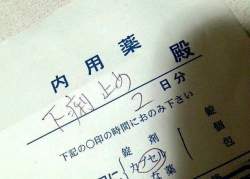 内用薬 殿
下痢止め
2日分
下記の〇印の時間におのみ下さい
錠剤 錠
カプセル 個
薬 包